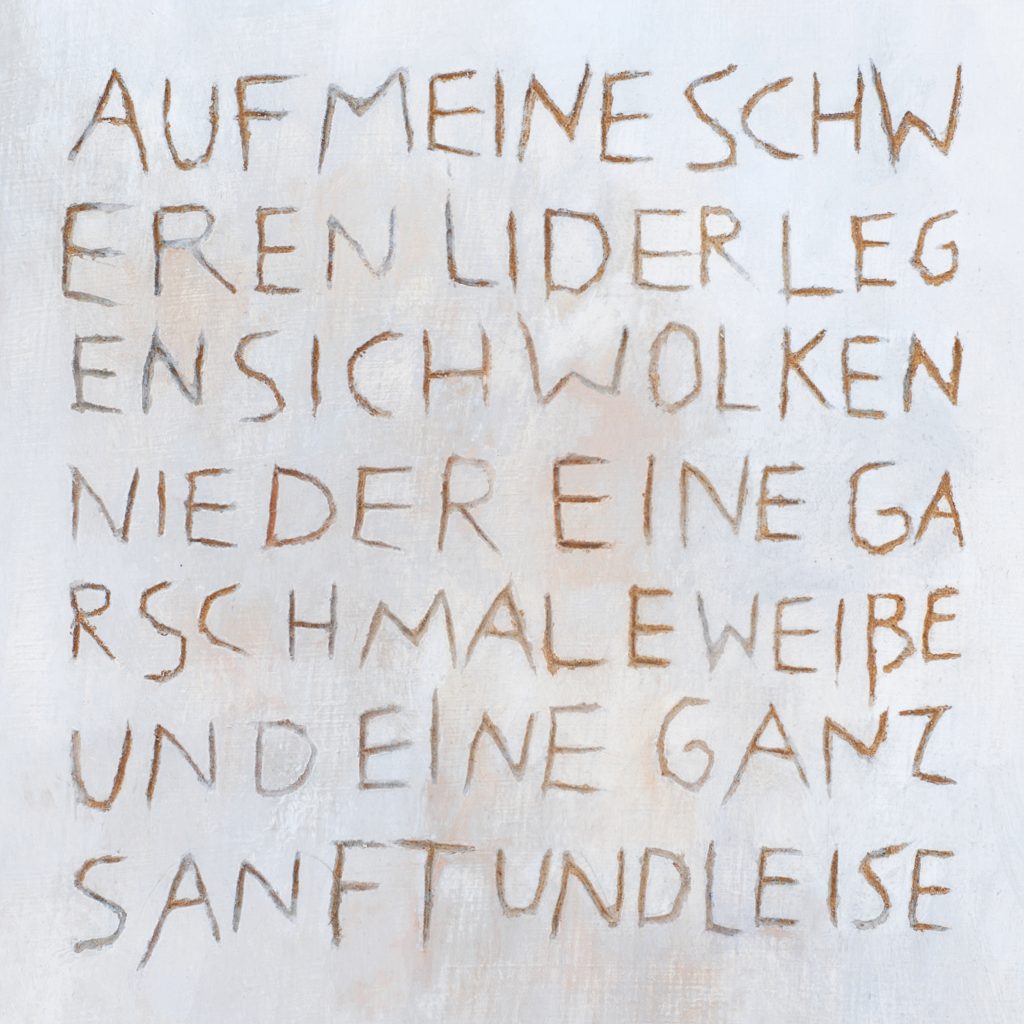 AUF MEINE SCHW
EREN LIDER LEG
EN SICH WOLKEN
NIEDER EINE GA
R SCHMALE WEIßE
UND EINE GANZ
SANFT UND LEISE